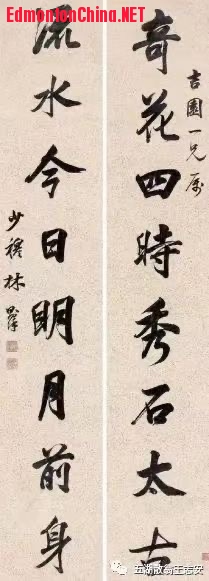 EdmontonChina.NET
吉園一兄屬
奇花四時秀石太古
流水今日明月前身
少穆林則徐
五湖散翁王志安